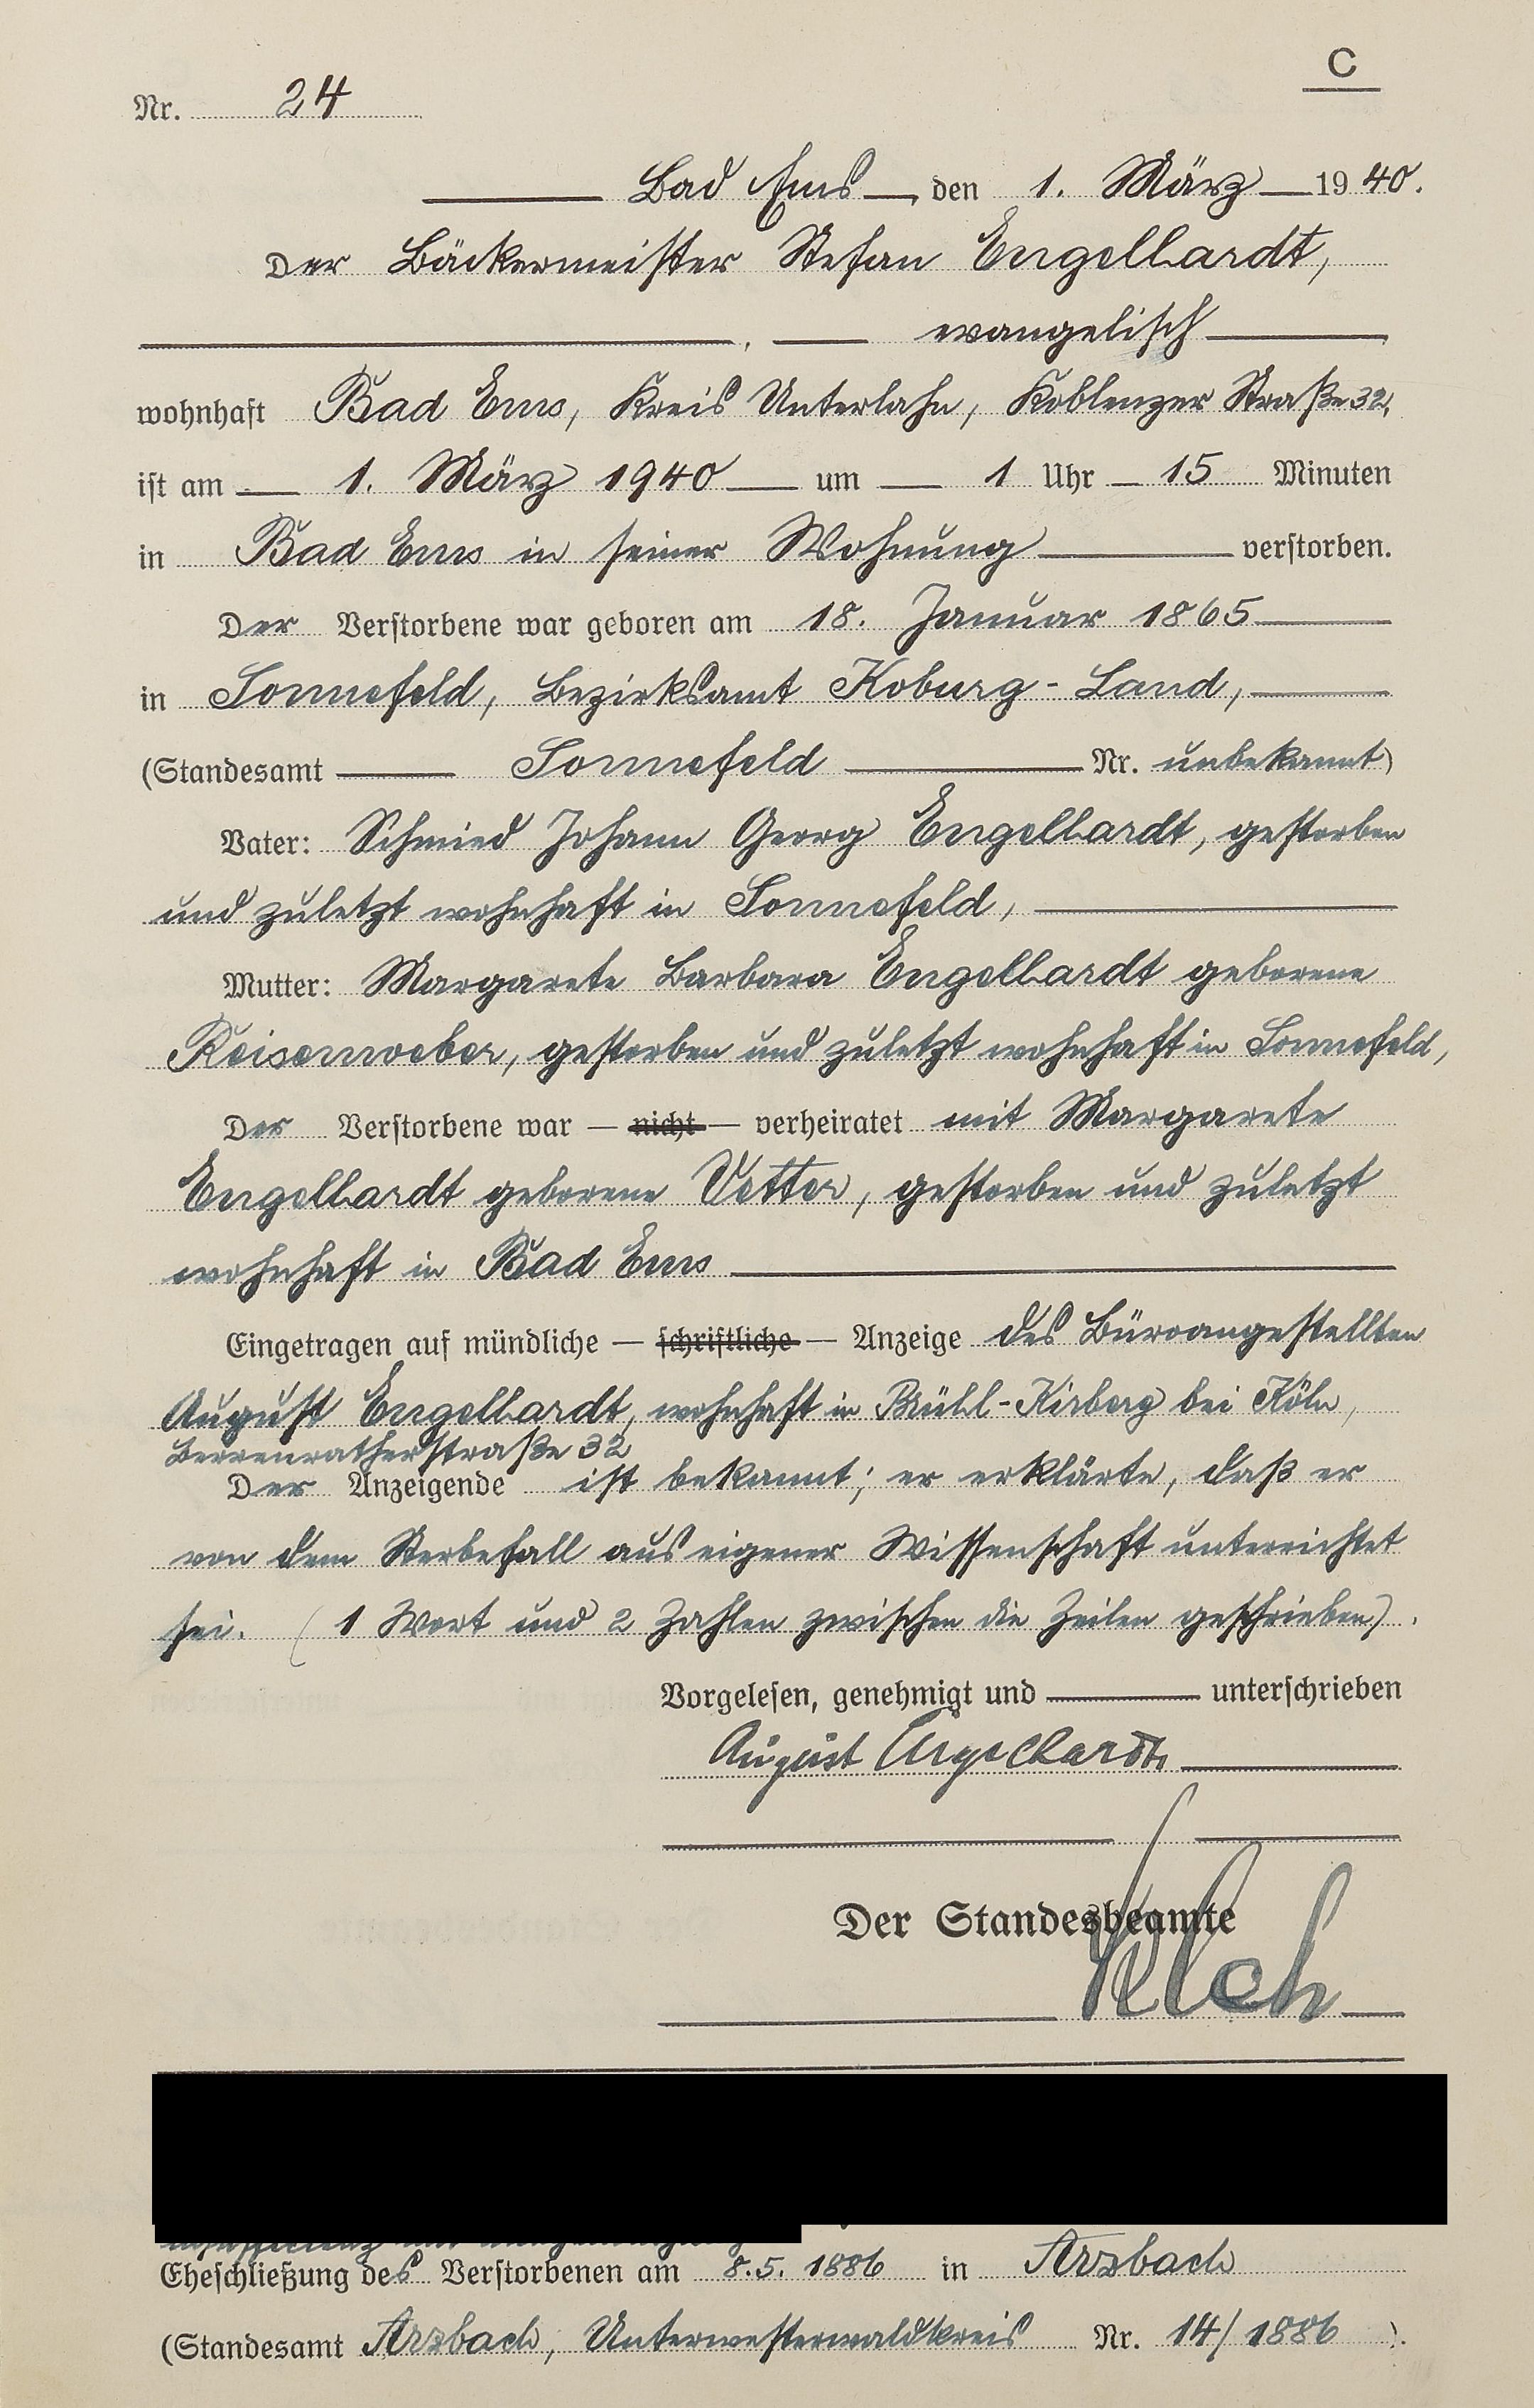 C
Nr. 24
Bad Ems, den 1. März 1940.
Der Bäckermeister Stefan Engelhardt,
, evangelisch
wohnhaft Bad Ems, Kreis Unterlahn, Koblenzer Straße 32,
ist am 1. März 1940 um 1 Uhr 15 Minuten
in Bad Ems in seiner Wohnung verstorben.
Der Verstorbene war geboren am 18. Januar 1865
in Sonnefeld, Bezirksamt Koburg-Land,
(Standesamt Sonnefeld Nr. unbekannt)
Vater: Schmied Johann Georg Engelhardt, gestorben
und zuletzt wohnhaft in Sonnefeld,
Mutter: Margarete Barbara Engelhardt geborene
Reisenweber, gestorben und zuletzt wohnhaft in Sonnefeld,
Der Verstorbene war — nicht — verheiratet mit Margarete
Engelhardt geborene Vetter, gestorben und zuletzt
wohnhaft in Bad Ems
Eingetragen auf mündliche — schriftliche — Anzeige des Büroangestellten
August Engelhardt, wohnhaft in Brühl-Kirberg bei Köln,
Berrenratherstraße 32
Der Anzeigende ist bekannt; er erklärte, daß er
von dem Sterbefall aus eigener Wissenschaft unterrichtet
sei. (1 Wort und 2 Zahlen zwischen die Zeilen geschrieben).
Vorgelesen, genehmigt und unterschrieben
August Engelhardt
Der Standesbeamte
Eheschließung des Verstorbenen am 8.5.1886 in Arzbach
(Standesamt Arzbach, Unterwesterwaldkreis Nr. 14/1886).